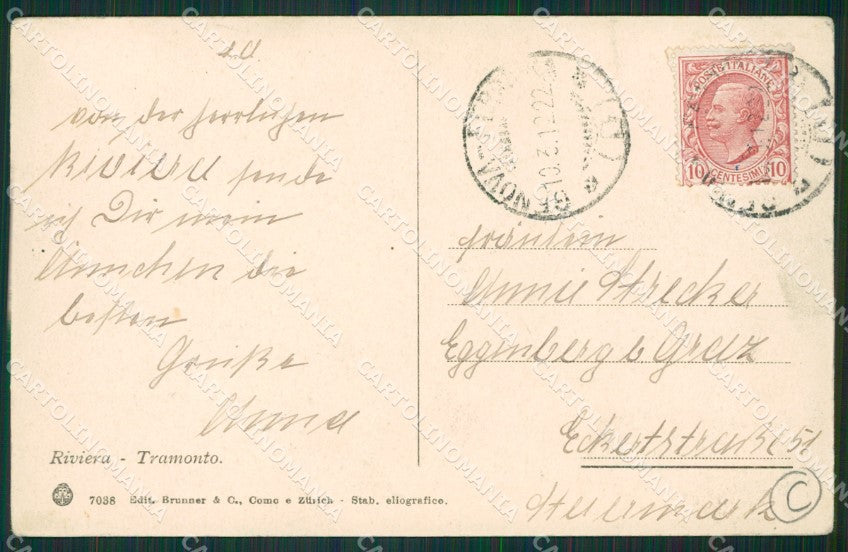 von der herrlichen
Riviera sende
ich Dir mein
Annchen die
besten
Grüße
Anna
Riviera - Tramonto.
7038 Edit. Brunner & C., Como e Zürich - Stab. eliografico.
GENOVA
10.3.12.22
POSTE ITALIANE
10 CENTESIMI 10
Fräulein
Annie Strecker
Eggenberg b Graz
Eckertstraße 51
Steiermark
C
CARTOLINOMANIA